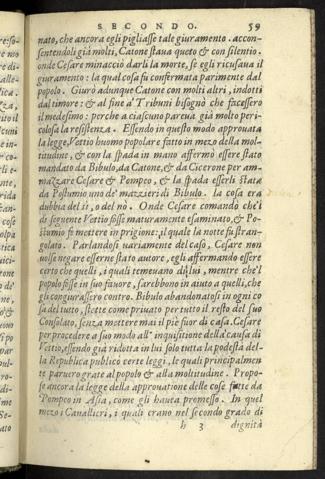 SECONDO. 59
nato, che ancora egli pigliasse tale giuramento. accon-
sentendoli già molti, Catone staua queto & con silentio.
onde Cesare minacciò darli la morte, se egli ricusaua il
giuramento: la qual cosa fu confermata parimente dal
popolo. Giurò adunque Catone con molti altri, indotti
dal timore: & al fine a' Tribuni bisognò che facessero
il medesimo: perche a ciascuno pareua già molto peri-
colosa la resistenza. Essendo in questo modo approuata
la legge, Vettio huomo popolare fatto in mezo della mol-
titudine, & con la spada in mano affermò essere stato
mandato da Bibulo, da Catone, & da Cicerone per am-
mazzare Cesare & Pompeo, & la spada esserli stata
da Postumio uno de' mazzieri di Bibulo. la cosa era
dubbia del sì, o del nò. Onde Cesare comandò che'l
dì seguente Vettio fosse maturamente esaminato, & Po-
stumio fu mettere in prigione: il quale la notte fu stran-
golato. Parlandosi uariamente del caso, Cesare non
uolse negare esserne stato autore, egli affermando essere
certo che quelli, i quali temeuano di lui, mentre che'l
popolo fosse in suo fauore, sarebbono in aiuto a quelli, che
gli congiurassero contro. Bibulo abandonatosi in ogni co
sa del tutto, stette come priuato per tutto il resto del suo
Consolato, senza mettere mai il piè fuor di casa. Cesare
per procedere a suo modo all'inquisitione della causa di
Vettio, essendo già ridotta in lui solo tutta la podestà del-
la Republica publicò certe leggi, le quali principalmen
te paruero grate al popolo & alla moltitudine. Propo-
se ancora la legge della approuatione delle cose fatte da
Pompeo in Asia, come gli haueа promesso. In quel
mezo i Cauallieri, i quali erano nel secondo grado di
h 3 dignità